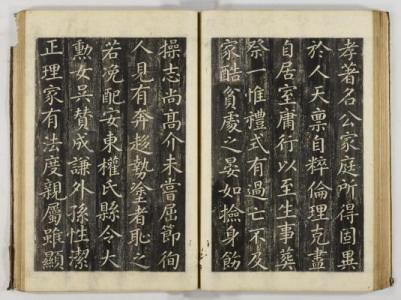 孝著名公家庭所得固異
於人天禀自粹倫理克盡
自居室庸行以至生事葬
祭一惟禮式有過亡不及
家酷貧處之晏如撿身飭
操志尚髙介未甞屈節徇
人見有奔趍勢塗者恥之
若浼配安東權氏縣令大
勳女吳賛成謙外孫性潔
正理家有法度親屬雖顯